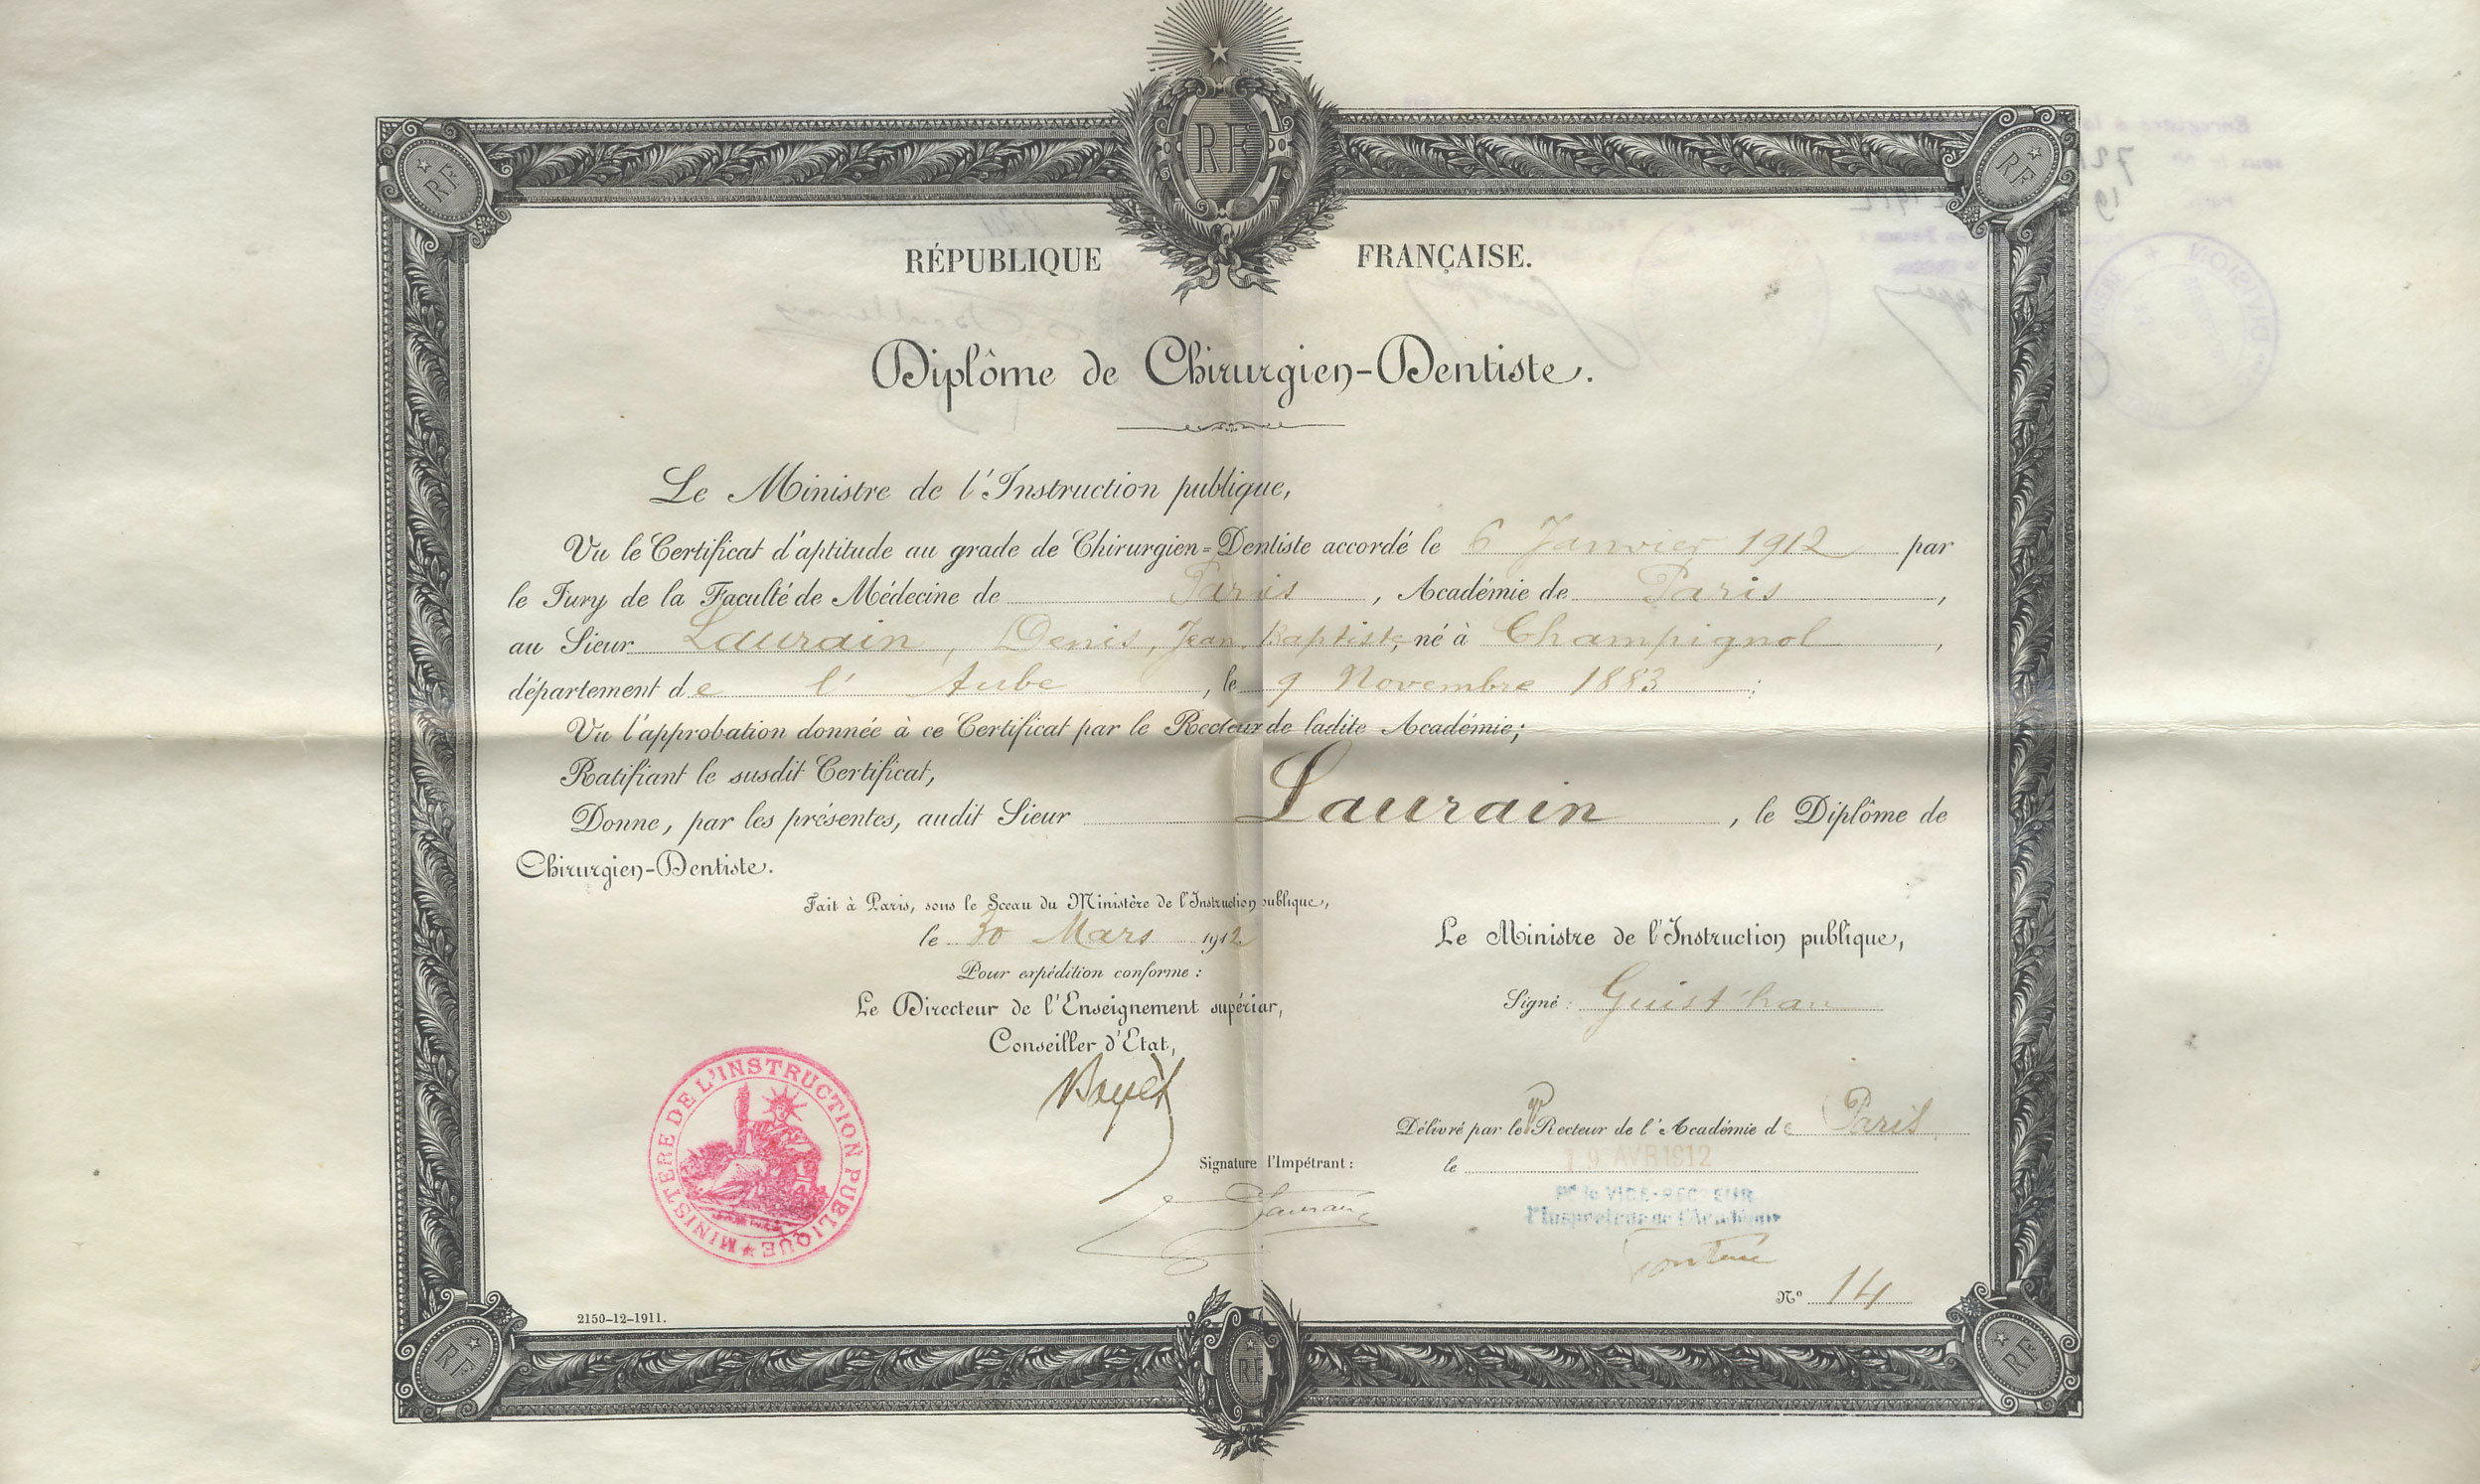 RF
RF
RF
RÉPUBLIQUE FRANÇAISE.
Diplôme de Chirurgien-Dentiste.
Le Ministre de l'Instruction publique,
Vu le Certificat d'aptitude au grade de Chirurgien=Dentiste accordé le 6 Janvier 1912 par
le Jury de la Faculté de Médecine de Paris, Académie de Paris,
au Sieur Laurain, Denis, Jean Baptiste, né à Champignol,
département de l'Aube, le 9 Novembre 1883;
Vu l'approbation donnée à ce Certificat par le Recteur de ladite Académie;
Ratifiant le susdit Certificat,
Donne, par les présentes, audit Sieur Laurain, le Diplôme de
Chirurgien-Dentiste.
Fait à Paris, sous le Sceau du Ministère de l'Instruction publique,
le 30 Mars 1912
Pour expédition conforme :
Le Directeur de l'Enseignement supériur,
Conseiller d'Etat,
Bayet
Le Ministre de l'Instruction publique,
Signé : Guist'hau
MINISTÈRE DE L'INSTRUCTION PUBLIQUE
Délivré par le Recteur de l'Académie de Paris
le 19 AVR 1912
Pr le VICE-RECTEUR
l'Inspecteur de l'Académie
Signature l'Impétrant :
Laurain
No 14
2150-12-1911.
RF
RF
RF